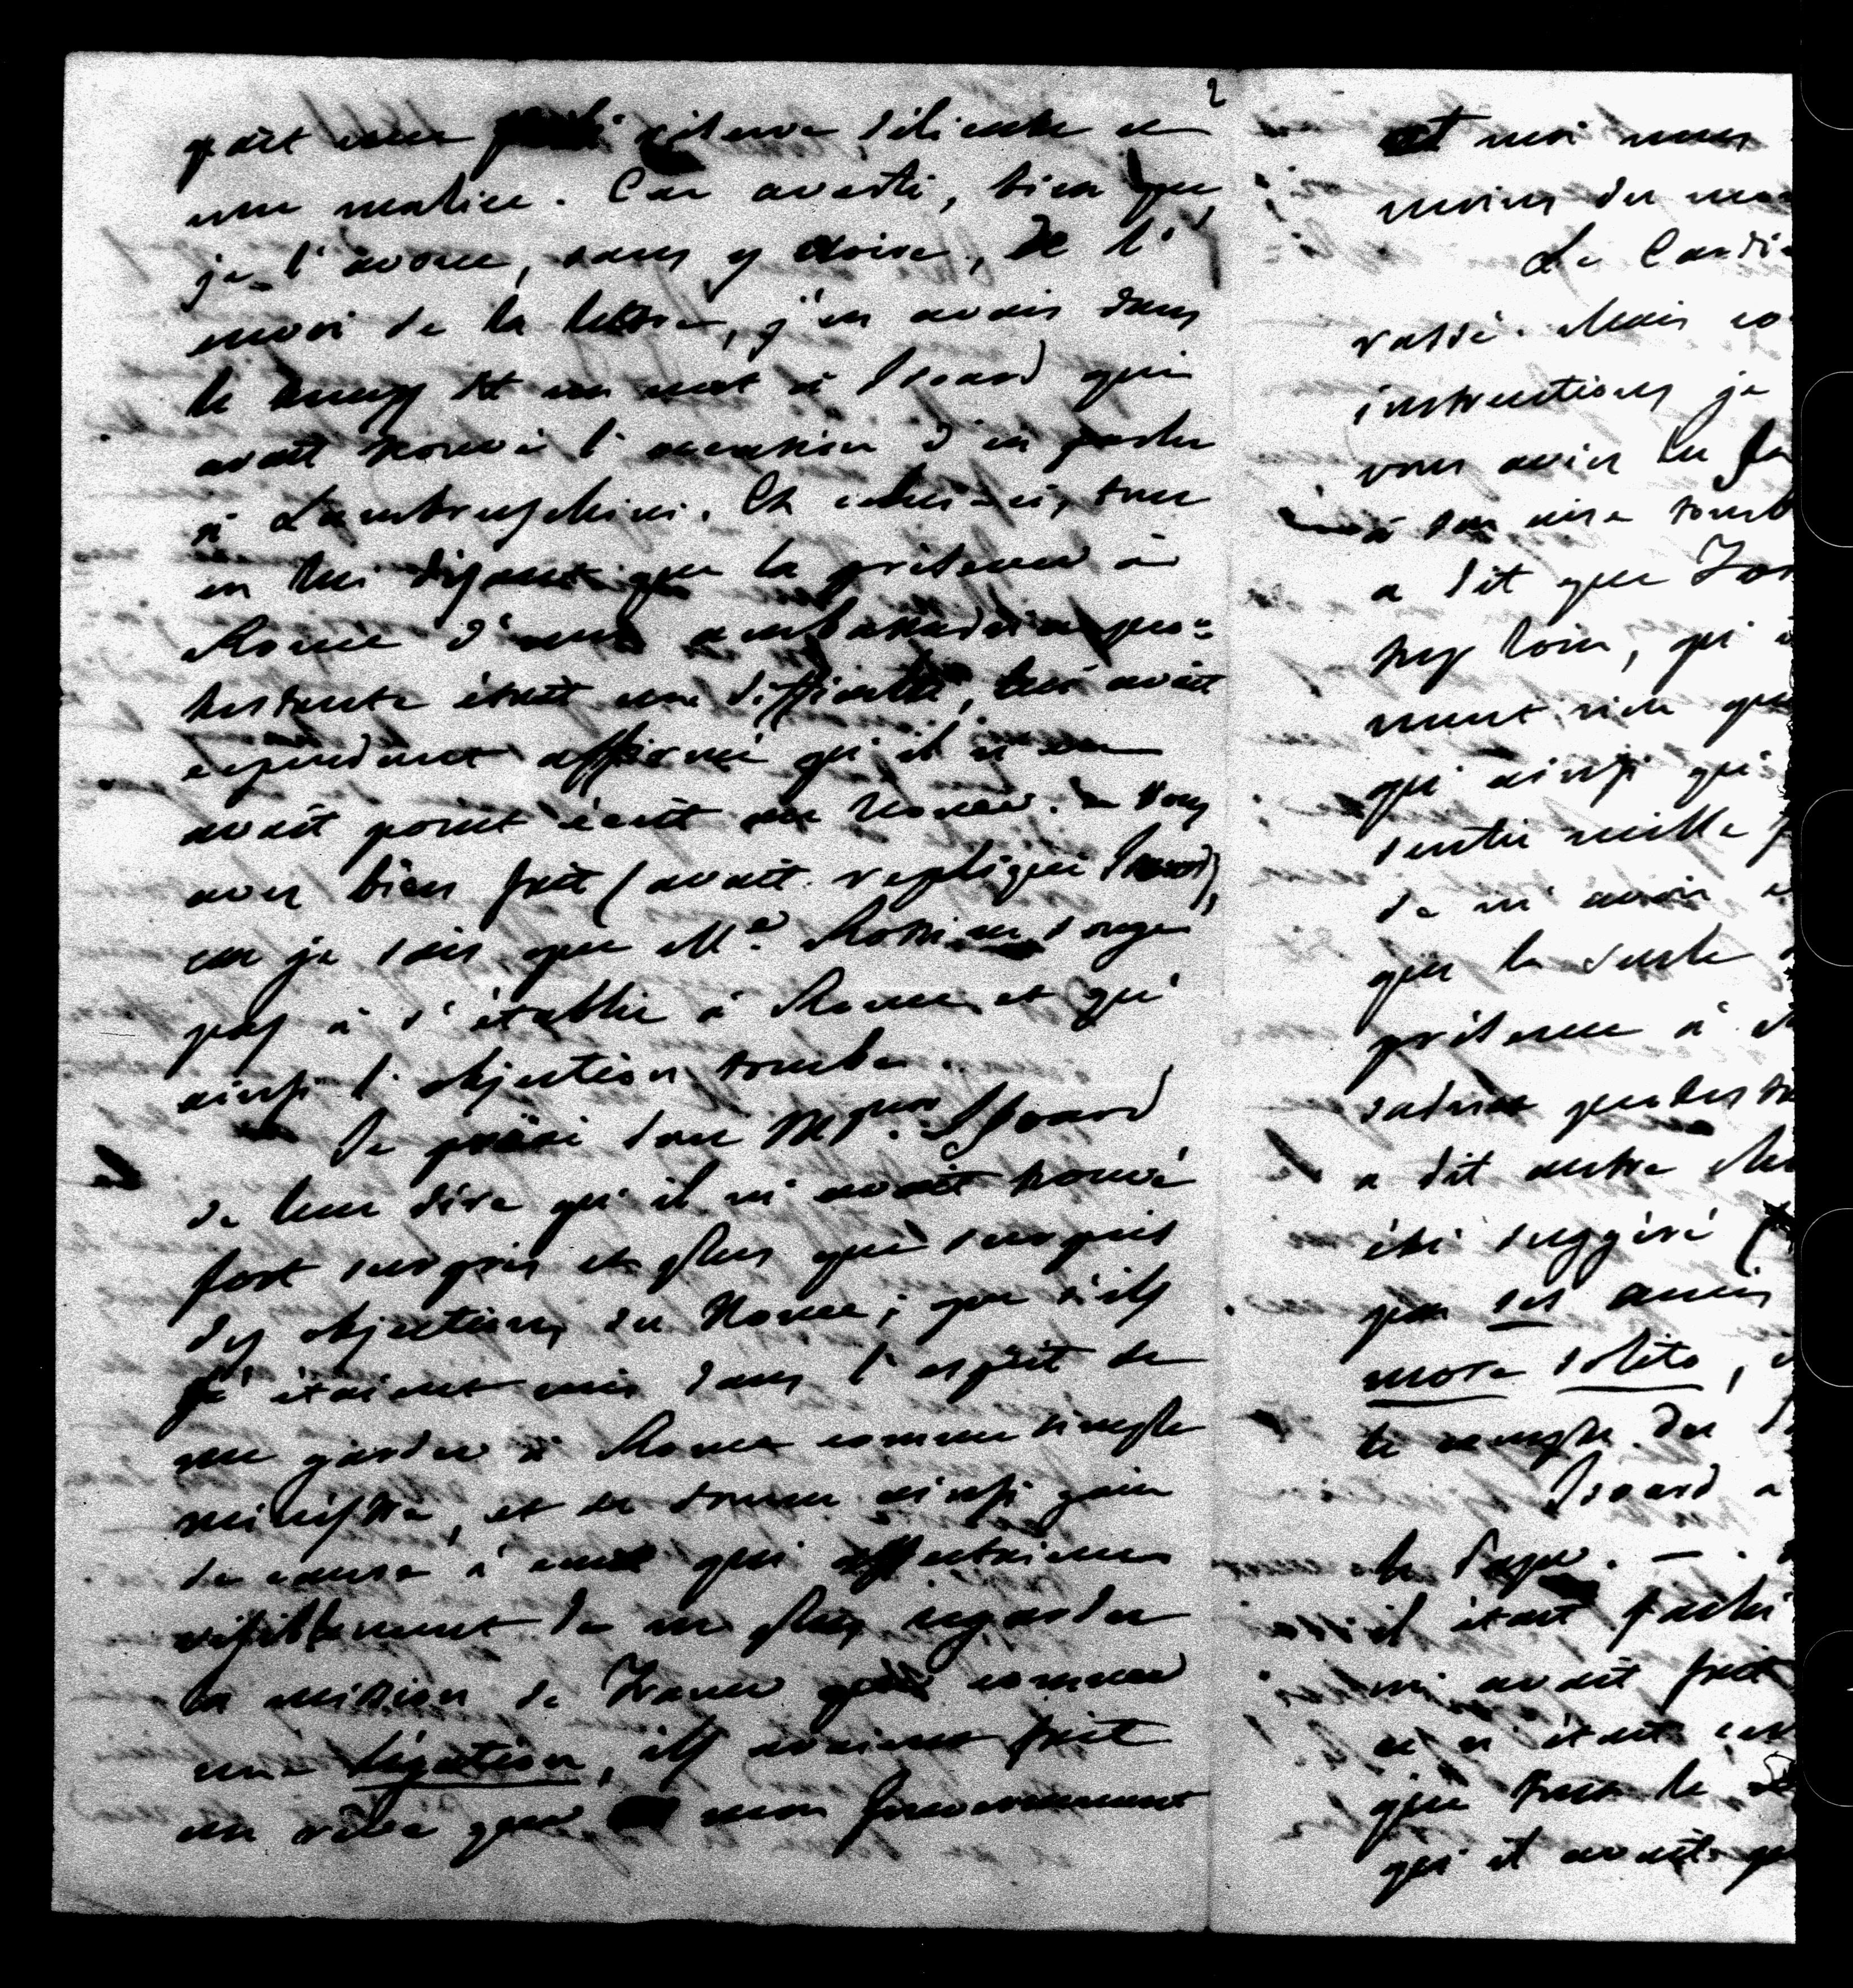 2
part une réticence, délicate et
une malice. Car averti, bien que
je l'avoue, sans y croire, de l'
envoi de la lettre, j'en avais dans
le temps dit un mot à Isoard qui
avait trouvé l'occasion d'en parler
à Lambruschini. Et celui-ci, tout
en lui disant que la présence à
Rome d'une ambassadrice pro=
testante était une difficulté, lui avait
cependant affirmé qu'il n'en
avait point écrit au Nonce. – Vous
avez bien fait (avait répliqué Isoard),
car je sais que Me. Rossi ne songe
pas à s'établir à Rome et qu'
ainsi l'objection tombe.
Je priai donc Mgr. Isoard
de leur dire qu'il m'avait trouvé
fort surpris et plus que surpris
des objections du Nonce; que s'ils
s'étaient mis dans l'esprit de
me garder à Rome comme simple
ministre, et de donner ainsi gain
de cause à ceux qui affectaient
visiblement de ne plus regarder
la mission de France que comme
une légation, ils avaient fait
un rêve que mon gouvernement
et moi nous
moins du mo
Le Cardi
rassé. Mais co
instructions je
vous aviez lu
à son aise tomb
a dit que
trop loin, qu'
ment rien que
qu'ainsi qu'
sentir mille
de m'avoir
que la seule
présence à
sadrice protesta
a dit autre
été suggéré
par ses amis
more solito,
le compte du
Isoard a
le Pape. –
il était
m'avait fait
ce n'était
que tout le
qu'il avait